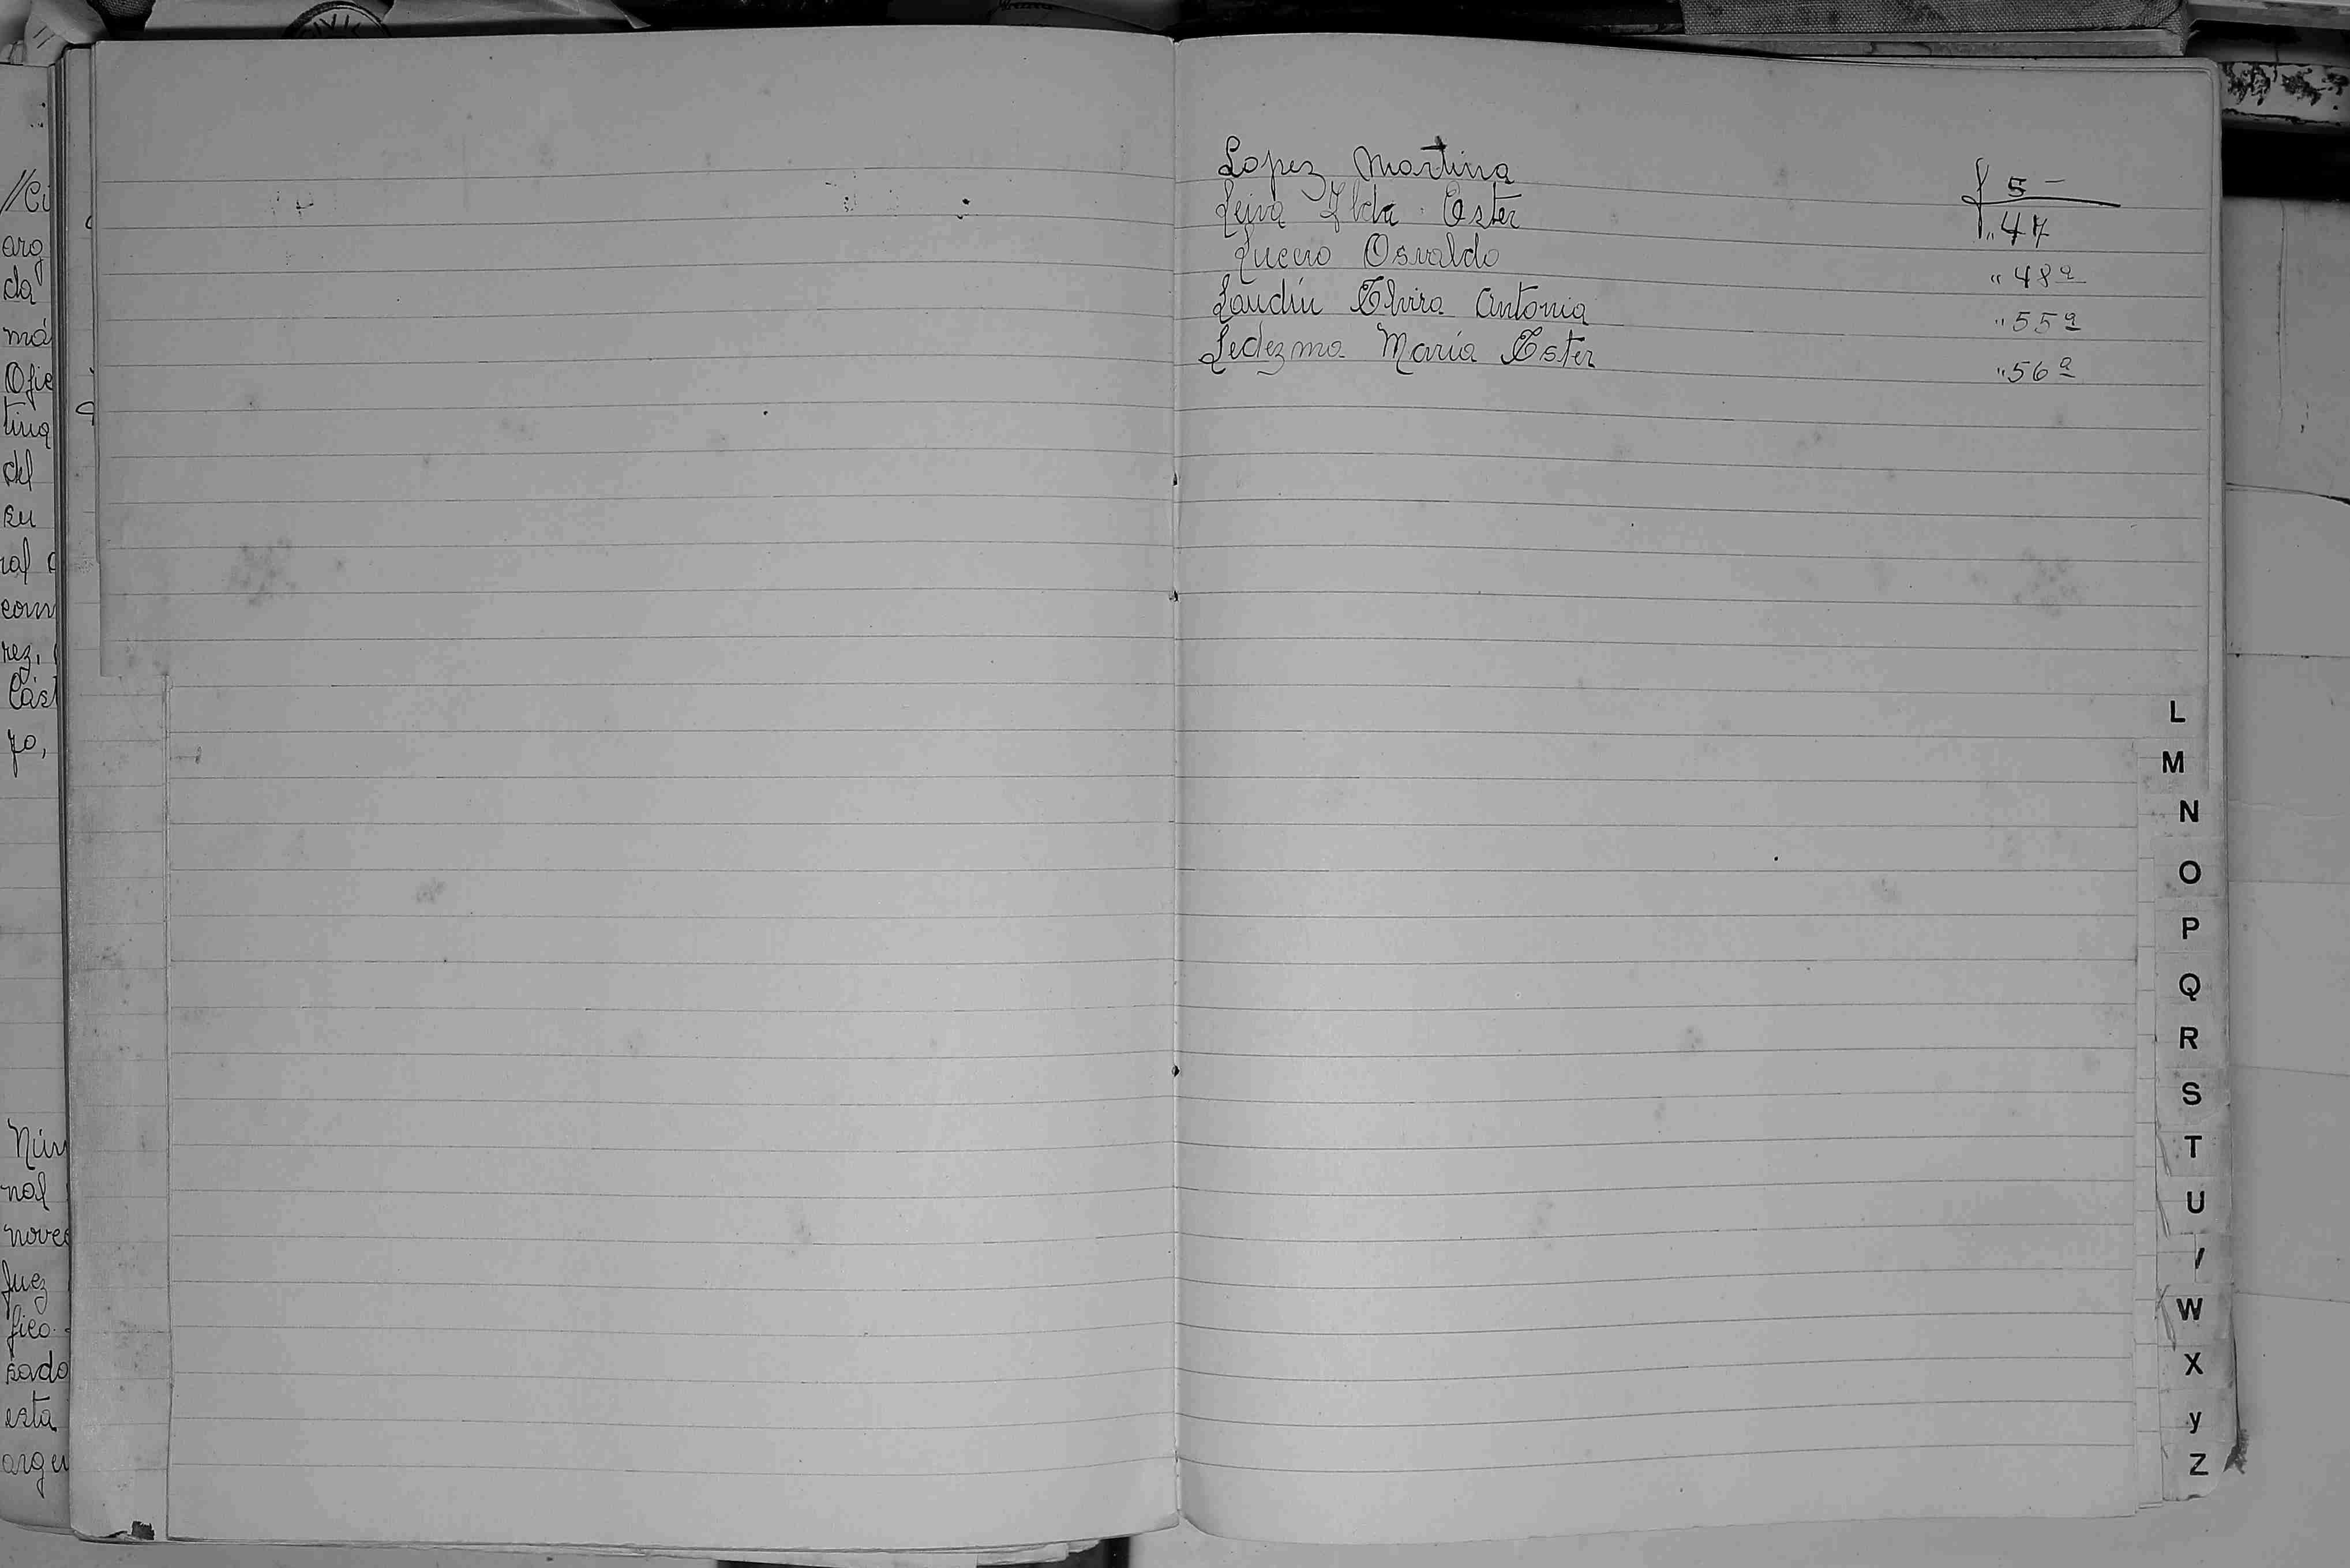 //Ci
arg
da
má
Ofic
tina
del
su
ral
com
rez,
Cást
yo,
Núm
nal
novec
Juez
fico
sado
esta
argen
Lopez Martina f 5 -
Leiva Ilda Ester " 47
Lucero Osvaldo " 48 a
Landín Elvira Antonia " 55 a
Ledezma María Ester " 56 a
L
M
N
O
P
Q
R
S
T
U
W
X
y
Z